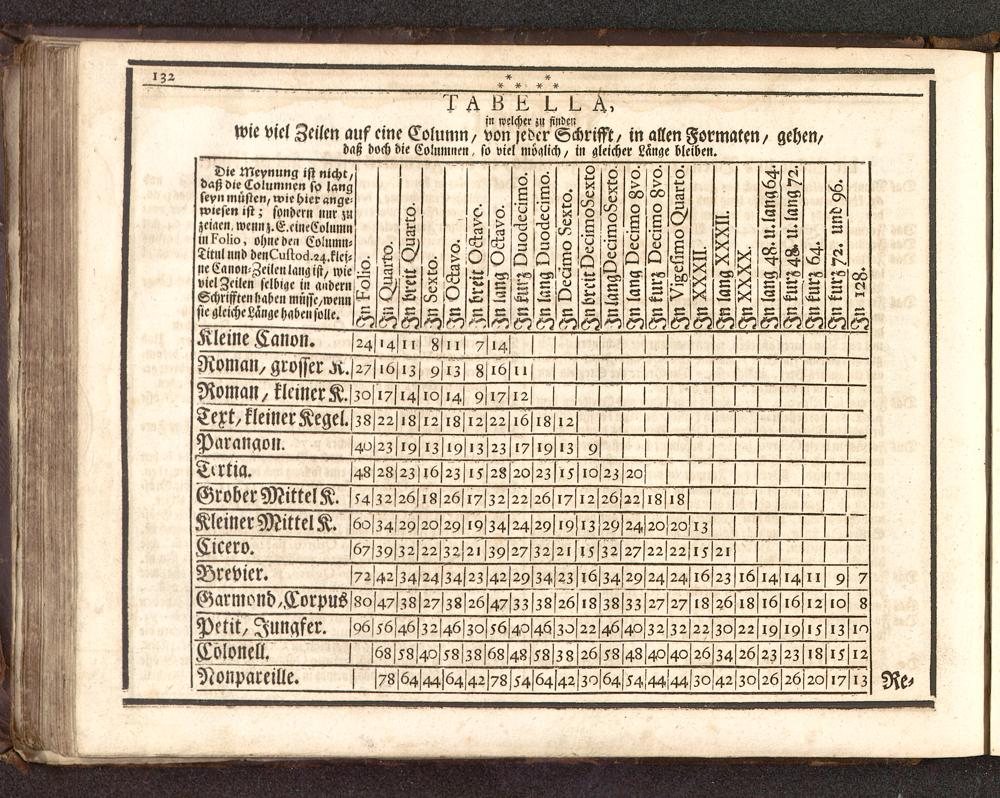 132
* *
* * * *
TABELLA,
in welcher zu finden
wie viel Zeilen auf eine Column, von jeder Schrifft, in allen Formaten, gehen,
daß doch die Columnen, so viel möglich, in gleicher Länge bleiben.
Die Meynung ist nicht,
daß die Columnen so lang
seyn müsten, wie hier ange-
wiesen ist; sondern nur zu
zeigen, wenn z. E. eine Column
in Folio, ohne den Column-
Titul und den Custod. 24. klei-
ne Canon-Zeilen lang ist, wie
viel Zeilen selbige in andern
Schrifften haben müsse, wenn
sie gleiche Länge haben solle.
In Folio.
In Quarto.
In breit Quarto.
In Sexto.
In Octavo.
In breit Octavo.
In lang Octavo.
In kurz Duodecimo.
In lang Duodecimo.
In Decimo Sexto.
In breit Decimo Sexto
In lang Decimo Sexto.
In lang Decimo 8vo.
In kurz Decimo 8vo.
In Vigesimo Quarto.
In XXXII.
In lang XXXII.
In XXXX.
In lang 48. u. lang 64.
In kurz 48. u. lang 72.
In kurz 64.
In kurz 72. und 96.
In 128.
Kleine Canon. 24 14 11 8 11 7 14
Roman, grosser K. 27 16 13 9 13 8 16 11
Roman, kleiner K. 30 17 14 10 14 9 17 12
Text, kleiner Kegel. 38 22 18 12 18 12 22 16 18 12
Parangon. 40 23 19 13 19 13 23 17 19 13 9
Tertia. 48 28 23 16 23 15 28 20 23 15 10 23 20
Grober Mittel K. 54 32 26 18 26 17 32 22 26 17 12 26 22 18 18
Kleiner Mittel K. 60 34 29 20 29 19 34 24 29 19 13 29 24 20 20 13
Cicero. 67 39 32 22 32 21 39 27 32 21 15 32 27 22 22 15 21
Brevier. 72 42 34 24 34 23 42 29 34 23 16 34 29 24 24 16 23 16 14 14 11 9 7
Garmond, Corpus 80 47 38 27 38 26 47 33 38 26 18 38 33 27 27 18 26 18 16 16 12 10 8
Petit, Jungfer. 96 56 46 32 46 30 56 40 46 30 22 46 40 32 32 22 30 22 19 19 15 13 10
Colonell. 68 58 40 58 38 68 48 58 38 26 58 48 40 40 26 34 26 23 23 18 15 12
Nonpareille. 78 64 44 64 42 78 54 64 42 30 64 54 44 44 30 42 30 26 26 20 17 13
Re-